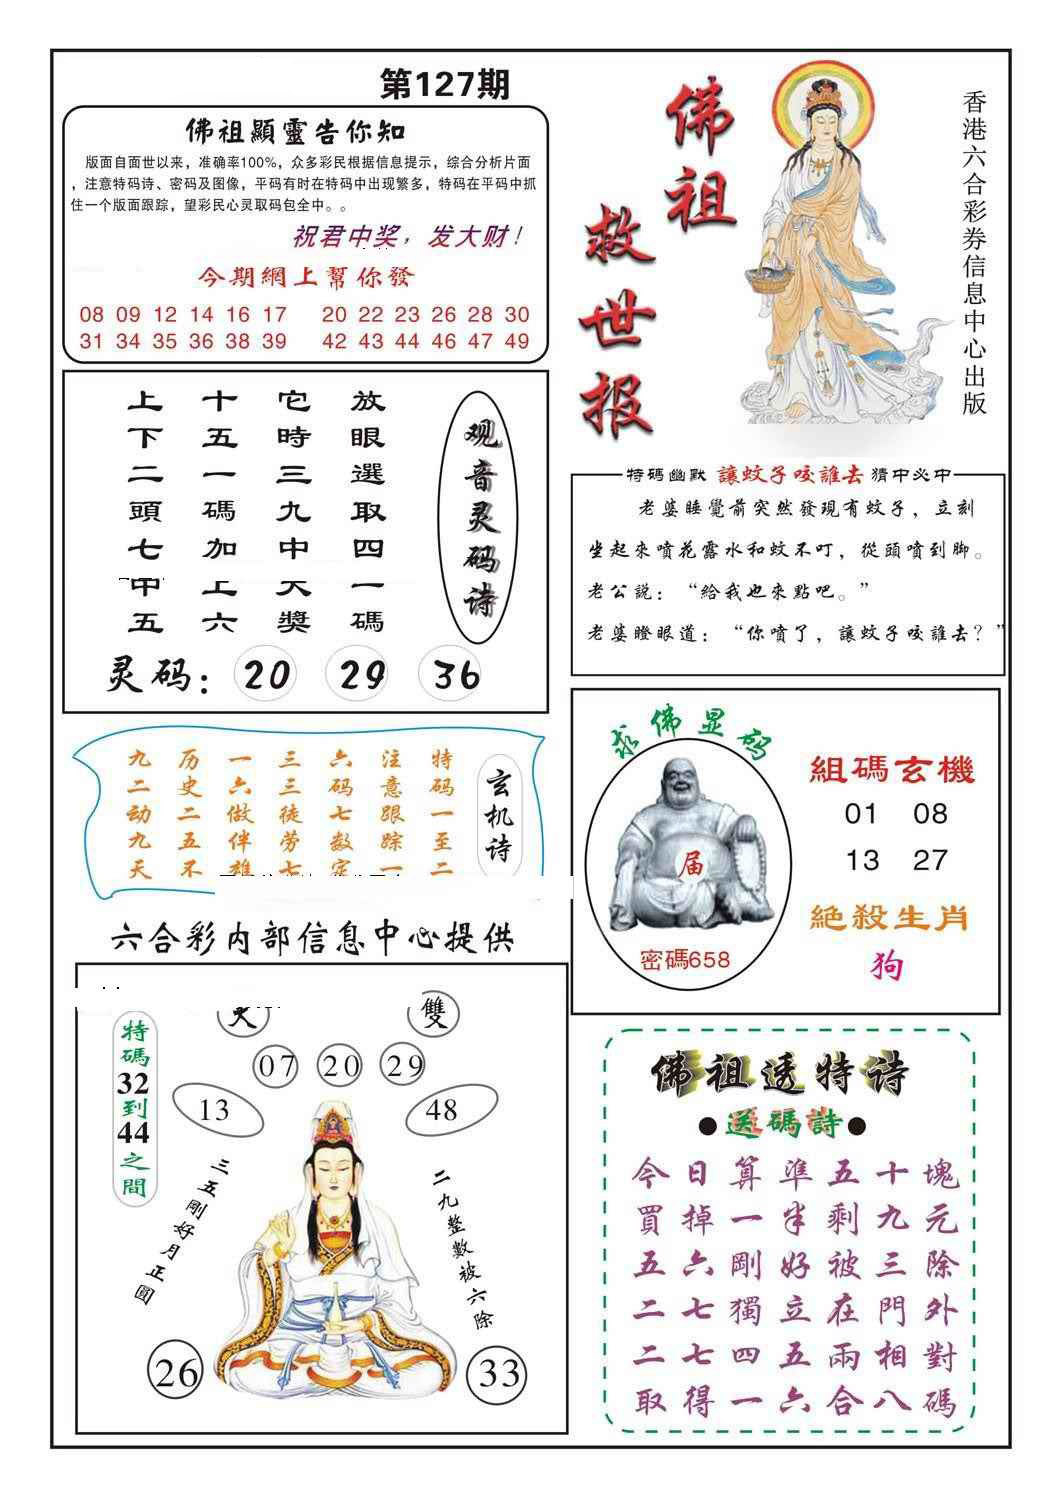 第127期
佛祖顯靈告你知
版面自面世以来，准确率100%，众多彩民根据信息提示，综合分析片面
，注意特码诗、密码及图像，平码有时在特码中出现繁多，特码在平码中抓
住一个版面跟踪，望彩民心灵取码包全中。。
祝君中奖，发大财！
今期網上幫你發
08 09 12 14 16 17 20 22 23 26 28 30
31 34 35 36 38 39 42 43 44 46 47 49
佛祖
救世报
香港六合彩券信息中心出版
观音灵码诗
放眼選取四一碼
它時三九中大獎
十五一碼加上六
上下二頭七中五
灵码：20 29 36
特碼幽默 讓蚊子咬誰去 猜中必中
老婆睡覺前突然發現有蚊子，立刻
坐起來噴花露水和蚊不叮，從頭噴到脚。
老公説：“給我也來點吧。”
老婆瞪眼道：“你噴了，讓蚊子咬誰去？”
玄机诗
特码一至二
注意跟踪一
六码七数定
三三徒劳七
一六做伴雄
历史二五不
九二动九天
求佛显码
届
密碼658
組碼玄機
01 08
13 27
絶殺生肖
狗
六合彩内部信息中心提供
雙
07 20 29
13 48
特碼32到44之間
三五剛好月正圓
二九整數被六除
26 33
佛祖透特诗
●送碼詩●
今日算準五十塊
買掉一半剩九元
五六剛好被三除
二七獨立在門外
二七四五兩相對
取得一六合八碼